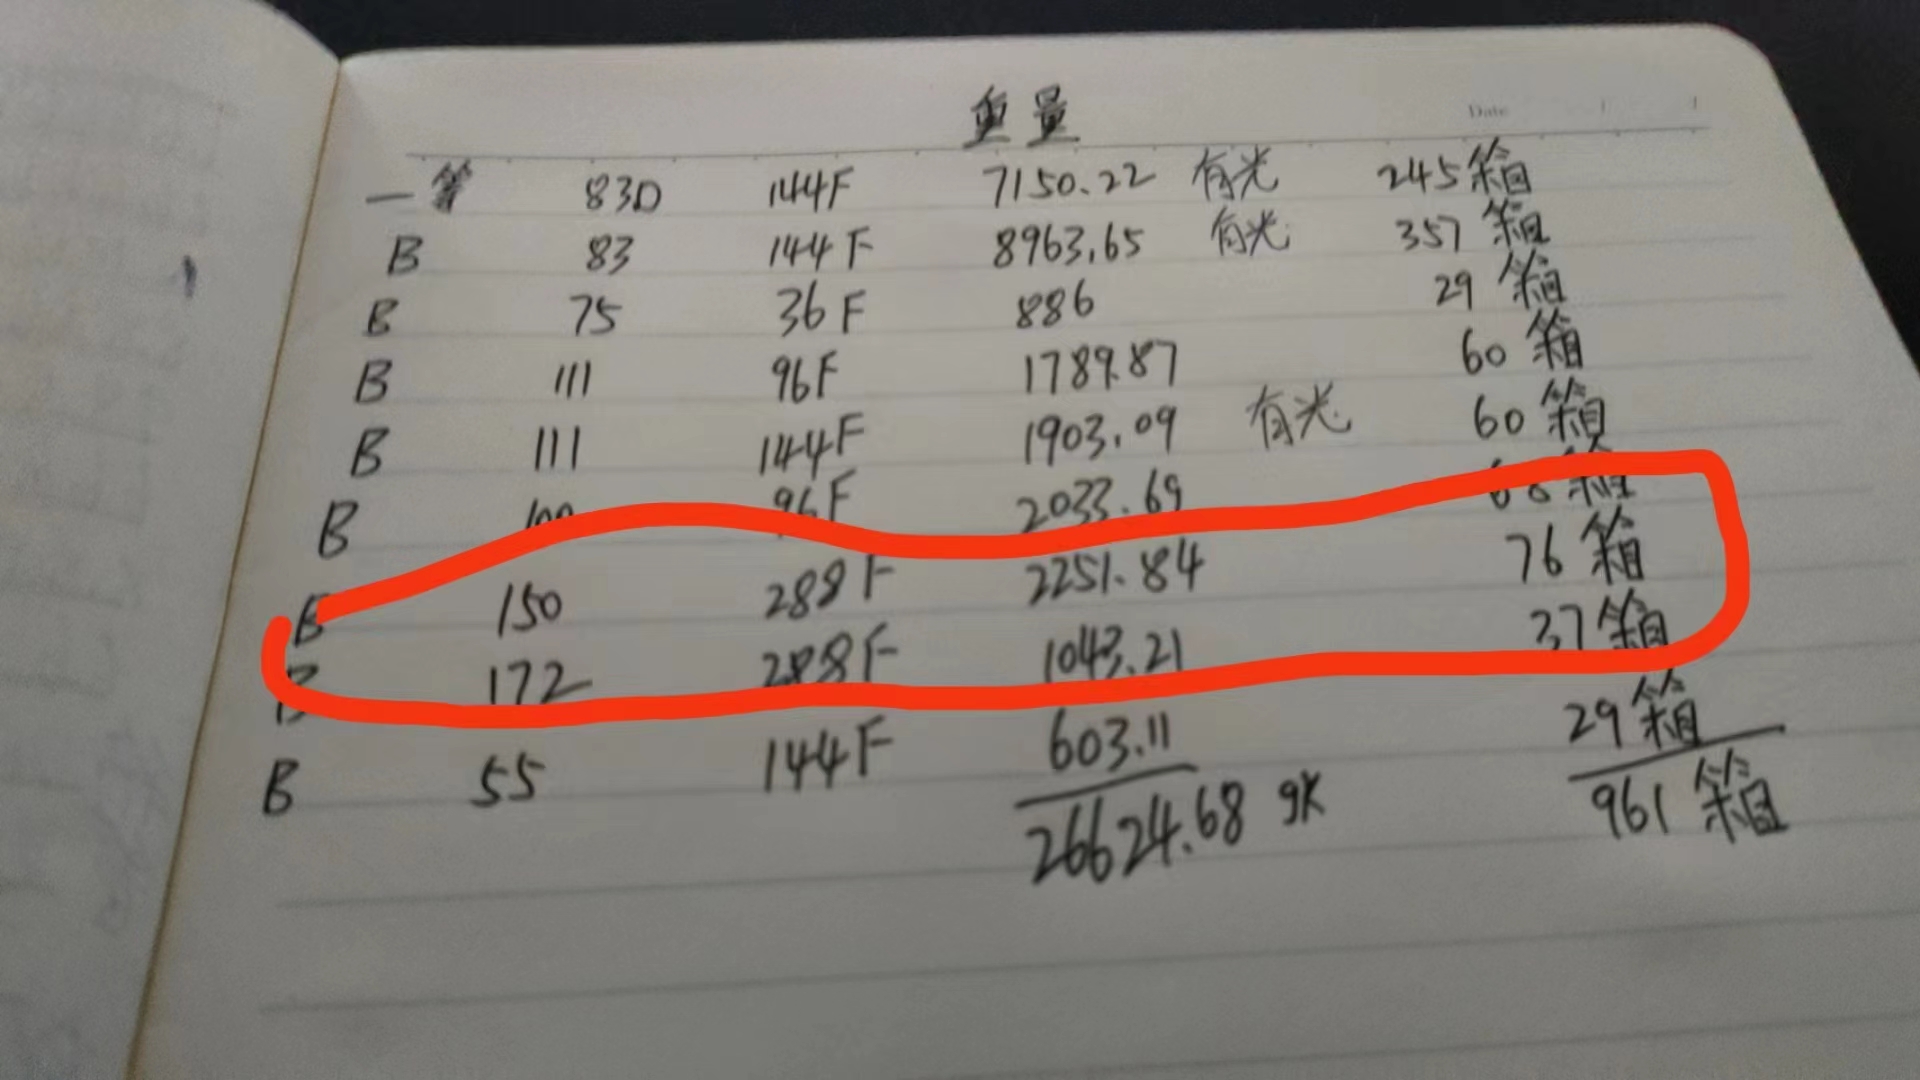 重量
Date
一等 83D 144F 7150.22 有光 245箱
B 83 144F 8963.65 有光 357箱
B 75 36F 886 29箱
B 111 96F 1789.87 60箱
B 111 144F 1903.09 有光 60箱
B 100 96F 2033.69 68箱
B 150 288F 2251.84 76箱
B 172 288F 1043.21 37箱
B 55 144F 603.11 29箱
26624.68 961箱